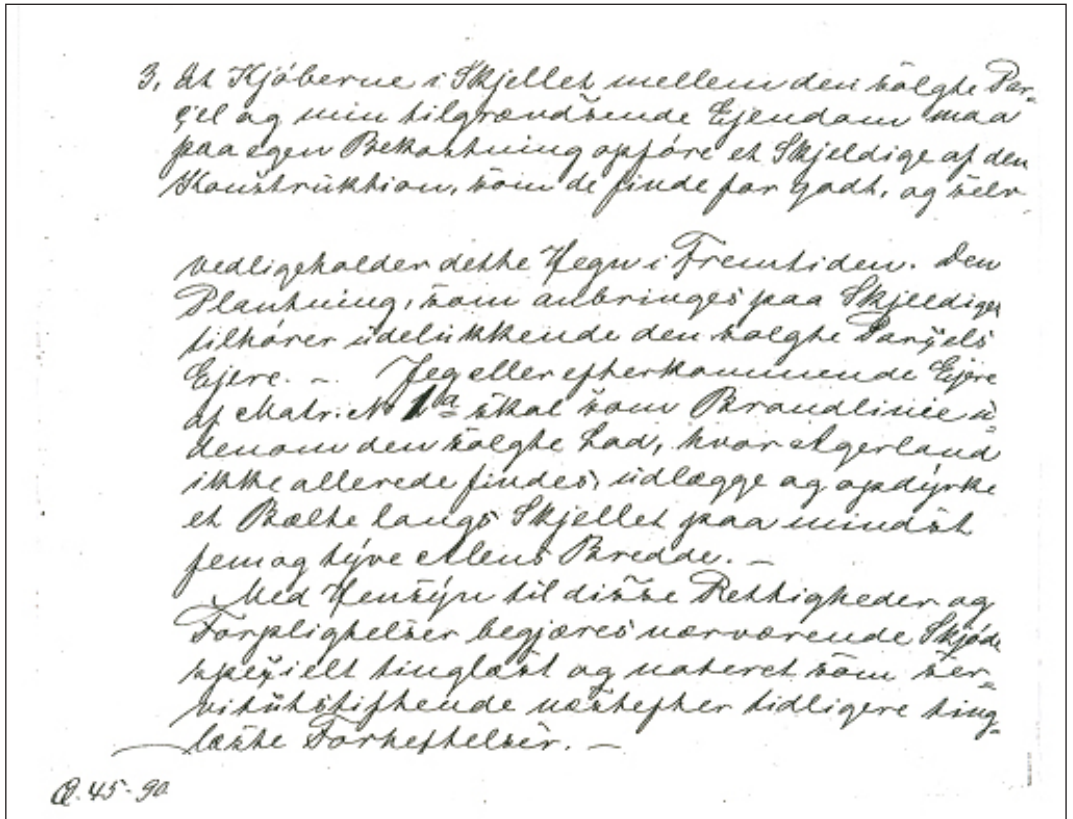 3, At Kjöberne i Skjellet mellem den solgte Par-
çel og min tilgrændsende Ejendom maa
paa egen Bekostning opföre et Skjeldige af den
Konstruktion, som de finde for godt, og selv
vedligeholder dette Hegn i Fremtiden. Den
Plantning, som anbringes paa Skjeldiget
tilhörer udelukkende den solgte Parçels
Ejere. — Jeg eller efterkommende Ejere
af Matr. No 1a skal som Brandlinie u-
denom den solgte Lod, hvor Agerland
ikke allerede findes, udlægge og opdyrke
et Bælte langs Skjellet paa mindst
fem og tyve Alens Bredde. —
Med Hensyn til disse Rettigheder og
Forpligtelser begjæres nærværende Skjöde
speçielt tinglæst og noteret som ser-
vitutstiftende næstefter tidligere ting-
læste Forheftelser. —
45-90